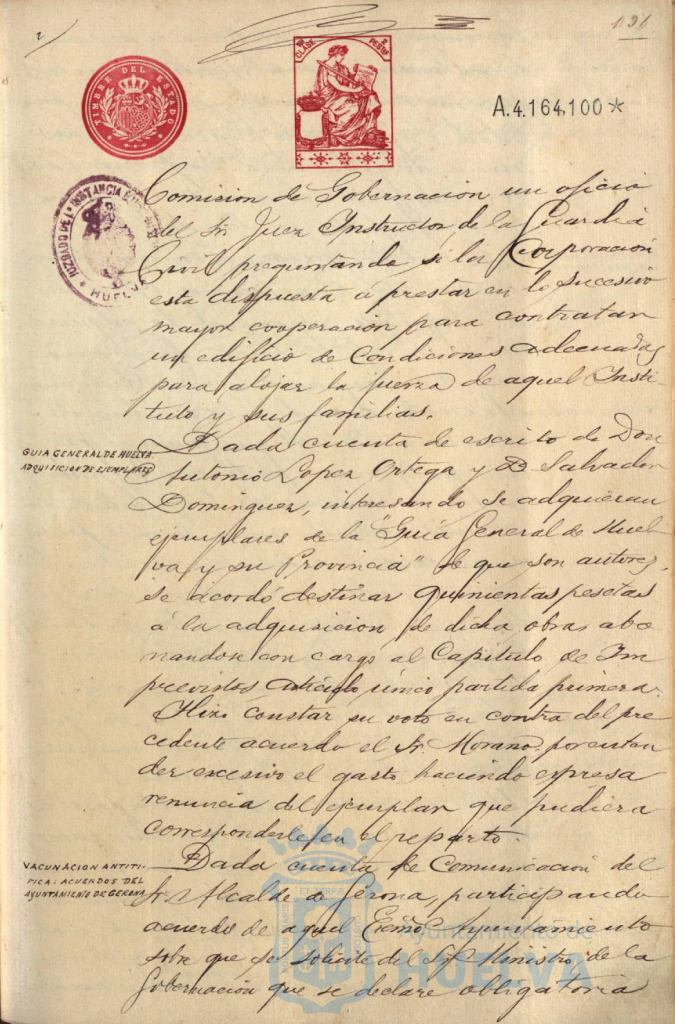 131
TIMBRE DEL ESTADO
CLASE
PESETAS
A.4.164.100*
JUZGADO DE 1ª INSTANCIA
HUELVA
Comision de Gobernacion un oficio
del Sr. Juez Instructor de la Guardia
Civil preguntando si la Corporación
esta dispuesta á prestar en lo sucesivo
mayor cooperación para contratar
un edificio de Condiciones adecuadas
para alojar la fuerza de aquel Insti-
tuto y sus familias.
GUIA GENERAL DE HUELVA.
ADQUISICION DE EJEMPLARES
Dada cuenta de escrito de Don
Antonio Lopez Ortega y D. Salvador
Dominguez, interesando se adquieran
ejemplares de la "Guía General de Huel
va y su Provincia" de que son autores,
se acordó destinar quinientas pesetas
á la adquisicion de dicha obra abo
nandose con cargo al Capítulo de Im
previstos artículo único partida primera.
Hizo constar su voto en contra del pre
cedente acuerdo el Sr. Morano por enten
der excesivo el gasto haciendo expresa
renuncia del ejemplar que pudiera
corresponderle en el reparto.
VACUNACION ANTITI-
FICA: ACUERDOS DEL
AYUNTAMIENTO DE GERONA
Dada cuenta de Comunicacion del
Sr. Alcalde de Gerona, participando
acuerdo de aquel Excmo. Ayuntamiento
sobre que se solicite del Sr. Ministro de la
Gobernación que se declare obligatoria
Ayuntamiento de
HUELVA